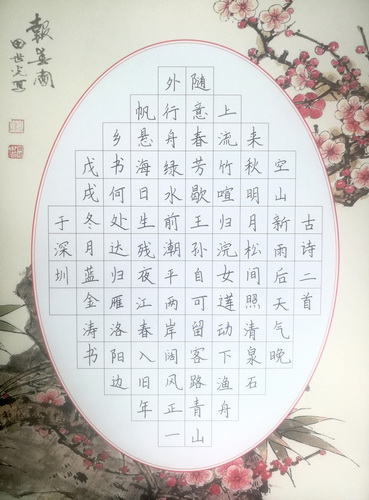 古诗二首
空山新雨后天气晚
来秋明月松间照清泉石
上流竹喧归浣女莲动下渔舟
随意春芳歇王孙自可留客路青山
外行舟绿水前潮平两岸阔风正一
帆悬海日生残夜江春入旧年
乡书何处达归雁洛阳边
戊戌冬月蓝金涛书
于深圳
報
田世光写